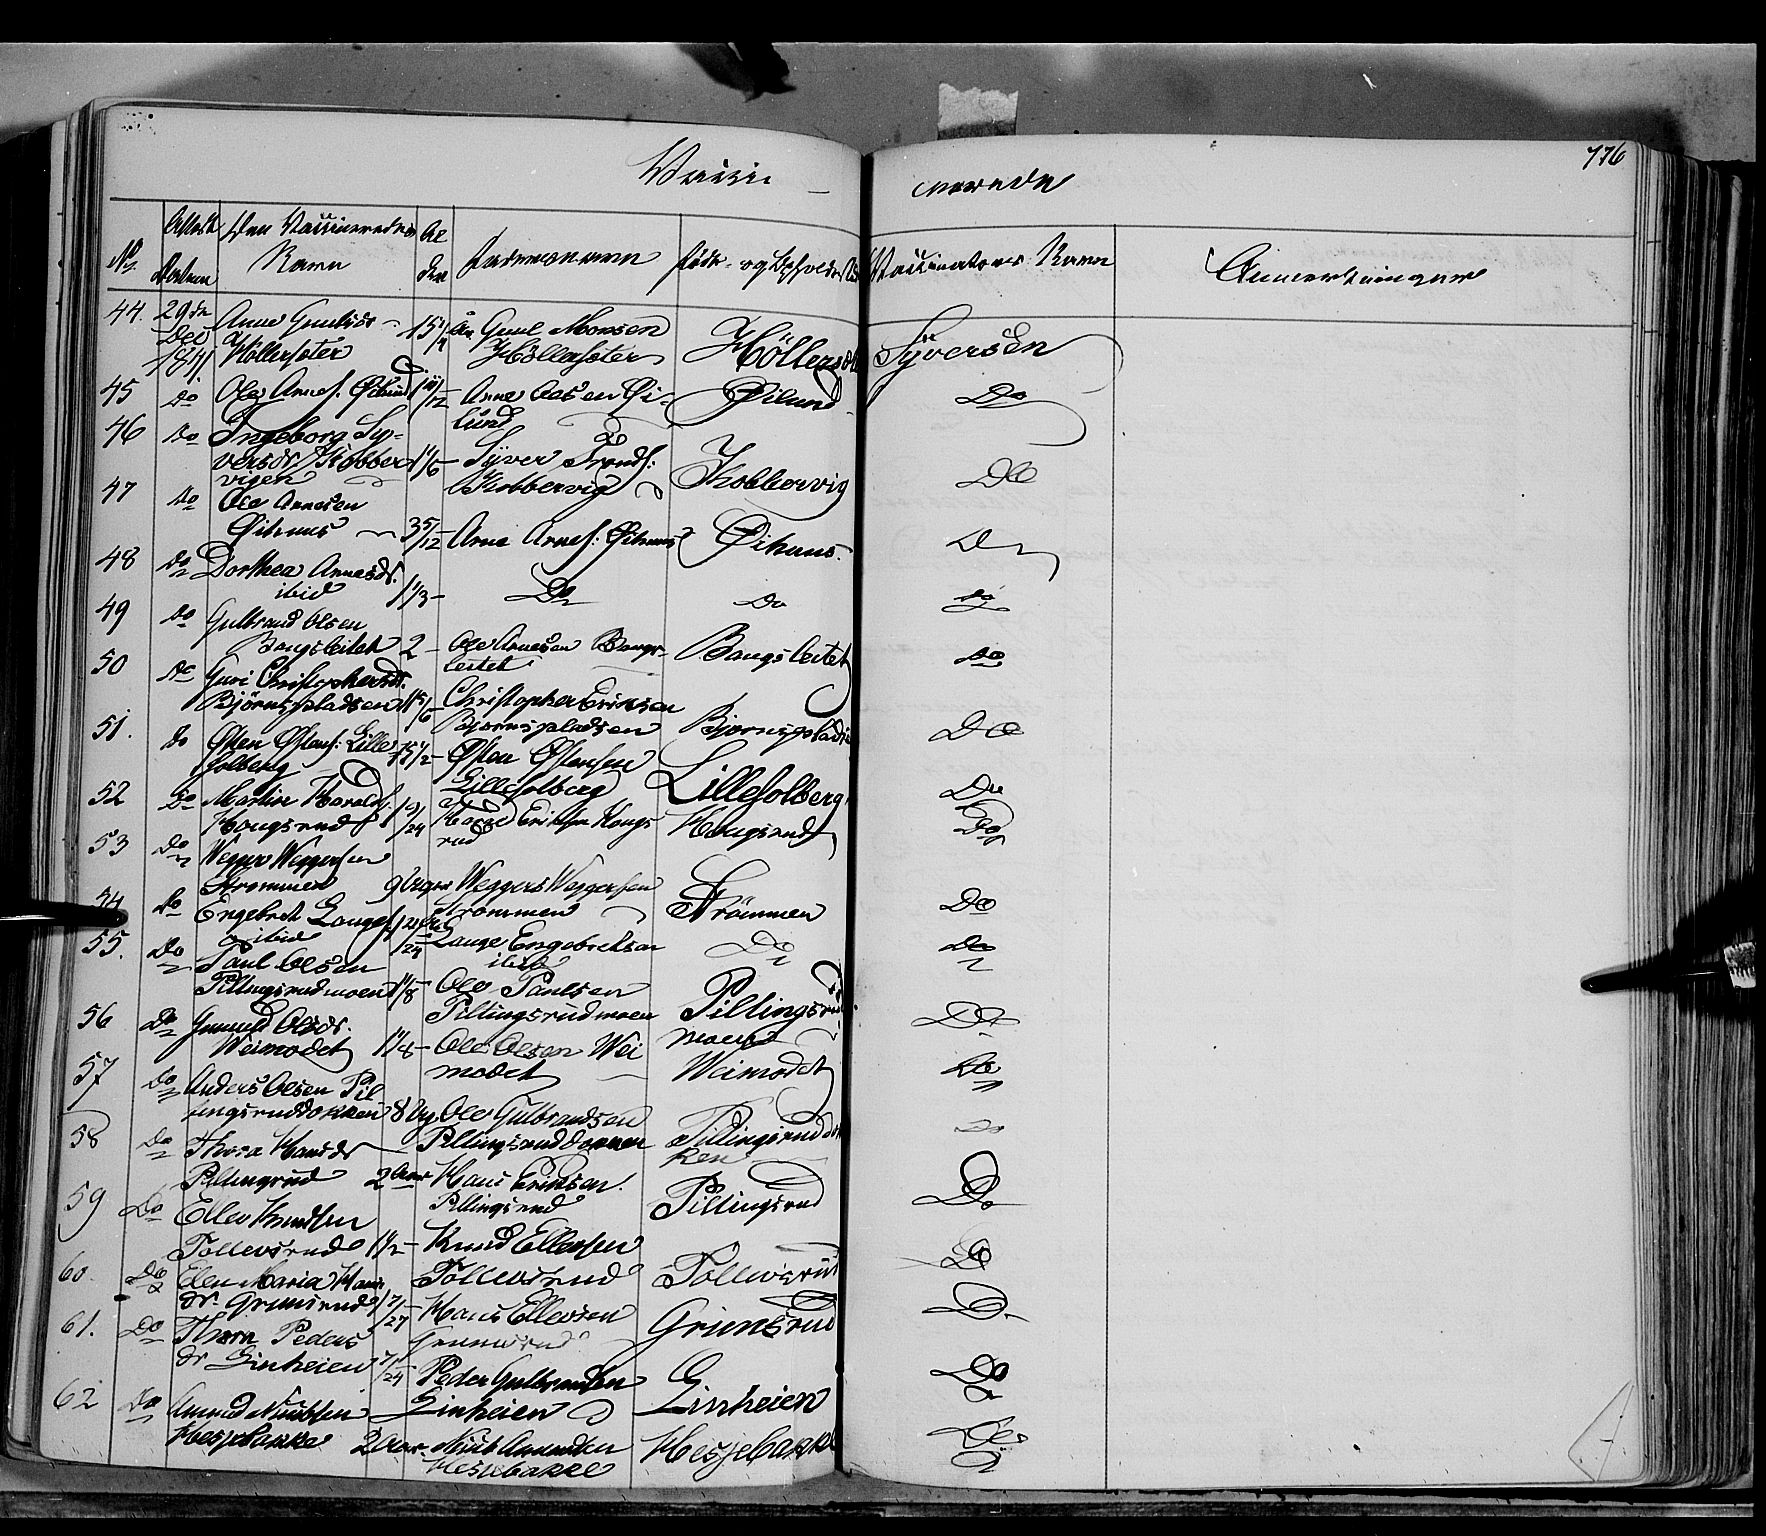 776
Vacci – nerede
No. Attest Datum Den Vaccineredes Navn Al der Faders navn Føde- og Opholds Vaccinateurs Navn Anmerkninger
44. 29de Dec 1841 Anne Gulsdr Höllersæter 15 1/4 Aar Gul Monsen Höllersæter Höllersæt Syversen
45 Do Ole Arnes. Øilund 1 11/12 – Arne Olsen Øilund Øilund Do
46 Do Ingeborg Syversdr Kobbervigen 1 1/6 – Syver Tronds. Kobbervig Kobbervig Do
47 Do Ole Arnesen Øihuus 3 5/12 – Arne Arnes: Øihuus Øihuus. Do
48 Do Dorthea Arnesdr. ibid 1 1/3 – Do Do Do
49 Do Gulbrand Olsen Bangsleitet 2 – Ole Arnesen Bangsleitet Bangsleitet Do
50 Do Guri Christophersdr. Björnspladsen 1 5/6 – Christopher Eriksen Bjørnspladsen Bjornspladsen Do
51. Do Østen Østens: Lille solberg 1/2 – Østen Østensen Lillesolberg Lillesolberg Do
52 Do Martin Haralds. Haugsrud 19/24 Eriksen Haugsrud Haugsrud Do
53 Do Wegger Weggersen Strømmen 9 Uger Weggers Weggersen Strømmen Strömmen Do
54 Do Engebret Langes. ibid /24 Lange Engebretsen ibid Do Do
55. Do Paul Olsen Pillingsrudmoen 1 1/8 – Ole Paulsen Pillingsrudmoen Pillingsrud moen Do
56 Do Gunild Olsdr. Weimodet 1 1/8 – Ole Olsen Weimodet Weimodet Do
57 Do Anders Olsen Pillingsruddokken 8 Ug Ole Gulbrandsen Pillingsruddokken Pillingsruddokken Do
58 Do Thora Hansdr Pillingsrud 2 Aar Hans Eriksen. Pillingsrud Pillingsrud Do
59 Do Ellev Knudsen Tollevsrud 1 1/2 – Knud Ellevsen Tollevsrud Tollevsrud Do
60. Do Elen Maria Hansdr. Grimsrud /24 – Hans Ellevsen Grimsrud Grimsrud Do
61. Do Thorn Pedersdr Linheien /24 Peder Gulbrandsen Linheien Linheien Do
62 Do Amund Nubsen Hesjebakke 2 Aar. Nub Amundsen Hesjebakke Hesjebakke Do